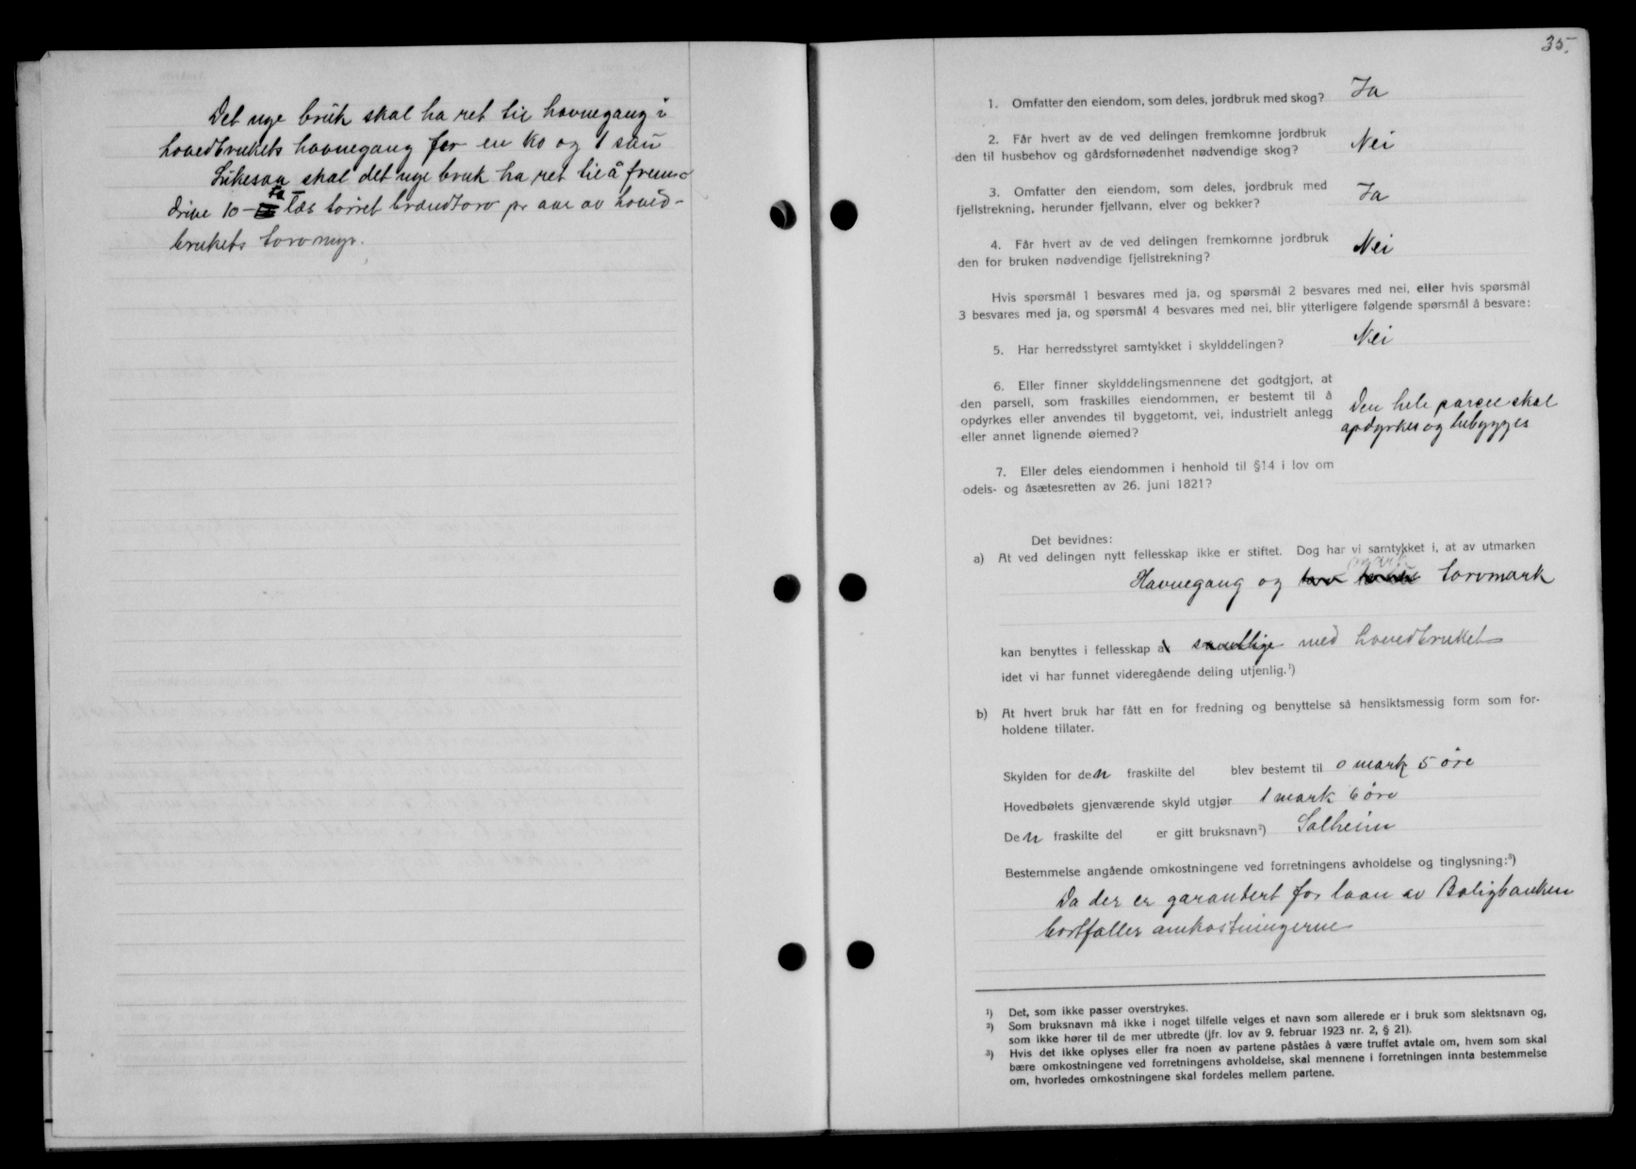 Det nye bruk skal ha ret til havnegang i
hovedbrukets havnegang for en ko og 1 sau
Likesaa skal det nye bruk ha ret til å frem-
drive 10 - ti - læs tørret brændtorv pr aar av hoved-
brukets torvmyr.
35.
1. Omfatter den eiendom, som deles, jordbruk med skog? Ja
2. Får hvert av de ved delingen fremkomne jordbruk
den til husbehov og gårdsfornødenhet nødvendige skog? Nei
3. Omfatter den eiendom, som deles, jordbruk med
fjellstrekning, herunder fjellvann, elver og bekker? Ja
4. Får hvert av de ved delingen fremkomne jordbruk
den for bruken nødvendige fjellstrekning? Nei
Hvis spørsmål 1 besvares med ja, og spørsmål 2 besvares med nei, eller hvis spørsmål
3 besvares med ja, og spørsmål 4 besvares med nei, blir ytterligere følgende spørsmål å besvare:
5. Har herredsstyret samtykket i skylddelingen? Nei
6. Eller finner skylddelingsmennene det godtgjort, at
den parsell, som fraskilles eiendommen, er bestemt til å
opdyrkes eller anvendes til byggetomt, vei, industrielt anlegg
eller annet lignende øiemed?
Den hele parcel skal
opdyrkes og bebygges
7. Eller deles eiendommen i henhold til §14 i lov om
odels- og åsætesretten av 26. juni 1821?
Det bevidnes:
a) At ved delingen nytt fellesskap ikke er stiftet. Dog har vi samtykket i, at av utmarken
Havnegang og torvmark
kan benyttes i fellesskap av samtlige med hovedbruket
idet vi har funnet videregående deling utjenlig.¹)
b) At hvert bruk har fått en for fredning og benyttelse så hensiktsmessig form som for-
holdene tillater.
Skylden for den fraskilte del blev bestemt til 0 mark 5 øre
Hovedbølets gjenværende skyld utgjør 1 mark 6 øre
Den fraskilte del er gitt bruksnavn²) Solheim
Bestemmelse angående omkostningene ved forretningens avholdelse og tinglysning:³)
Da der er garandert for laan av Boligbanken
bortfaller omkostningerne
¹) Det, som ikke passer overstrykes.
²) Som bruksnavn må ikke i noget tilfelle velges et navn som allerede er i bruk som slektsnavn og,
som ikke hører til de mer utbredte (jfr. lov av 9. februar 1923 nr. 2, § 21).
³) Hvis det ikke oplyses eller fra noen av partene påståes å være truffet avtale om, hvem som skal
bære omkostningene ved forretningens avholdelse, skal mennene i forretningen innta bestemmelse
om, hvorledes omkostningene skal fordeles mellem partene.